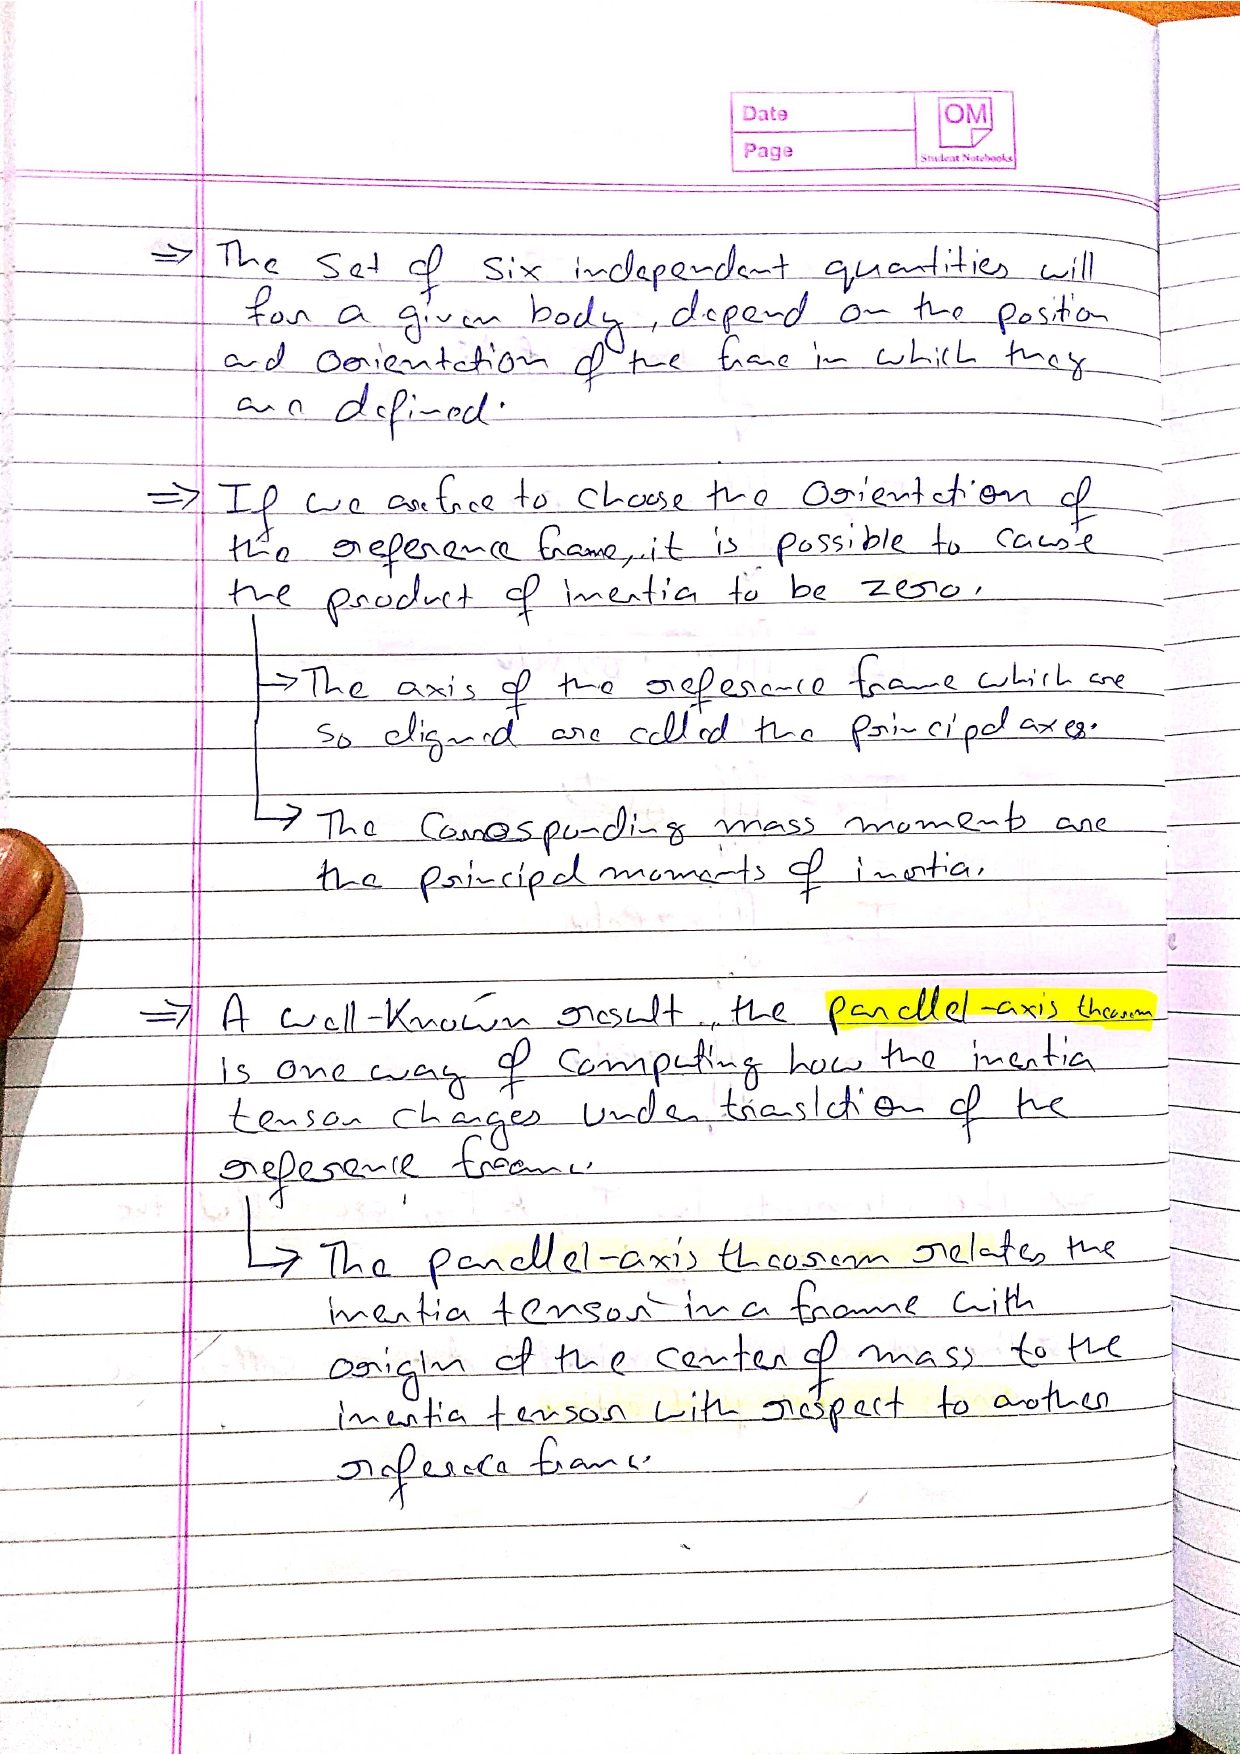 Date
Page
OM
Student Notebooks
⇒ The set of six independent quantities will
for a given body, depend on the position
and orientation of the frame in which they
are defined.
⇒ If we are free to choose the orientation of
the reference frame, it is possible to cause
the product of inertia to be zero.
→ The axis of the reference frame which are
so aligned are called the principal axes.
→ The Corresponding mass moments are
the principal moments of inertia.
⇒ A well-Known result, the parallel-axis theorem
is one way of Computing how the inertia
tensor changes under translation of the
reference frame.
→ The parallel-axis theorem relates the
inertia tensor in a frame with
origin at the center of mass to the
inertia tensor with respect to another
reference frame.